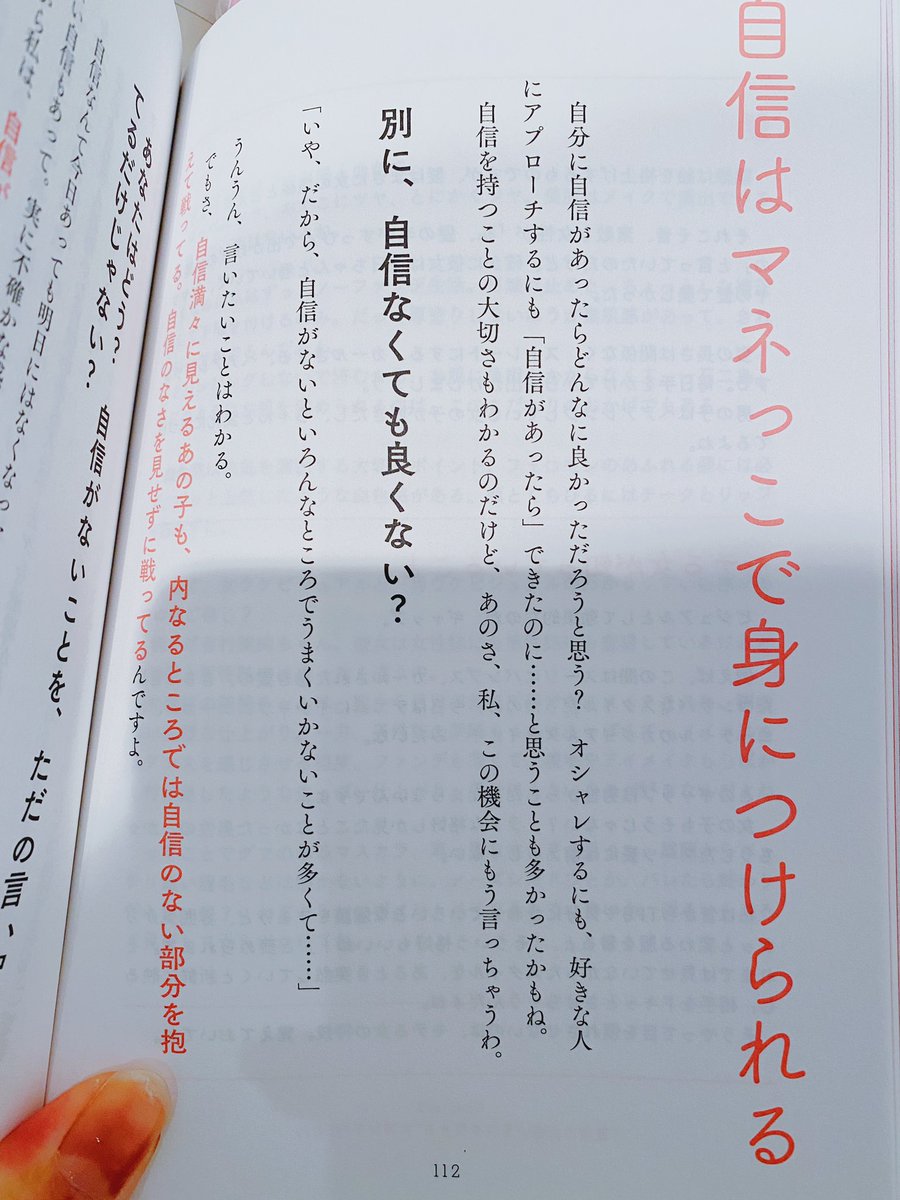 自信はマネっこで身につけられる
自分に自信があったらどんなに良かっただろうと思う？ オシャレするにも、好きな人
にアプローチするにも「自信があったら」できたのに……と思うことも多かったかもね。
自信を持つことの大切さもわかるのだけど、あのさ、私、この機会にもう言っちゃうわ。
別に、自信なくても良くない？
「いや、だから、自信がないといろんなところでうまくいかないことが多くて……」
うんうん、言いたいことはわかる。
でもさ、自信満々に見えるあの子も、内なるところでは自信のない部分を抱
えて戦ってる。自信のなさを見せずに戦ってるんですよ。
112
あなたはどう？ 自信がないことを、ただの言い
てるだけじゃない？
自信なんて今日あっても明日にはなくなっ
自信もあって。実に不確かな
ら私は、自信が